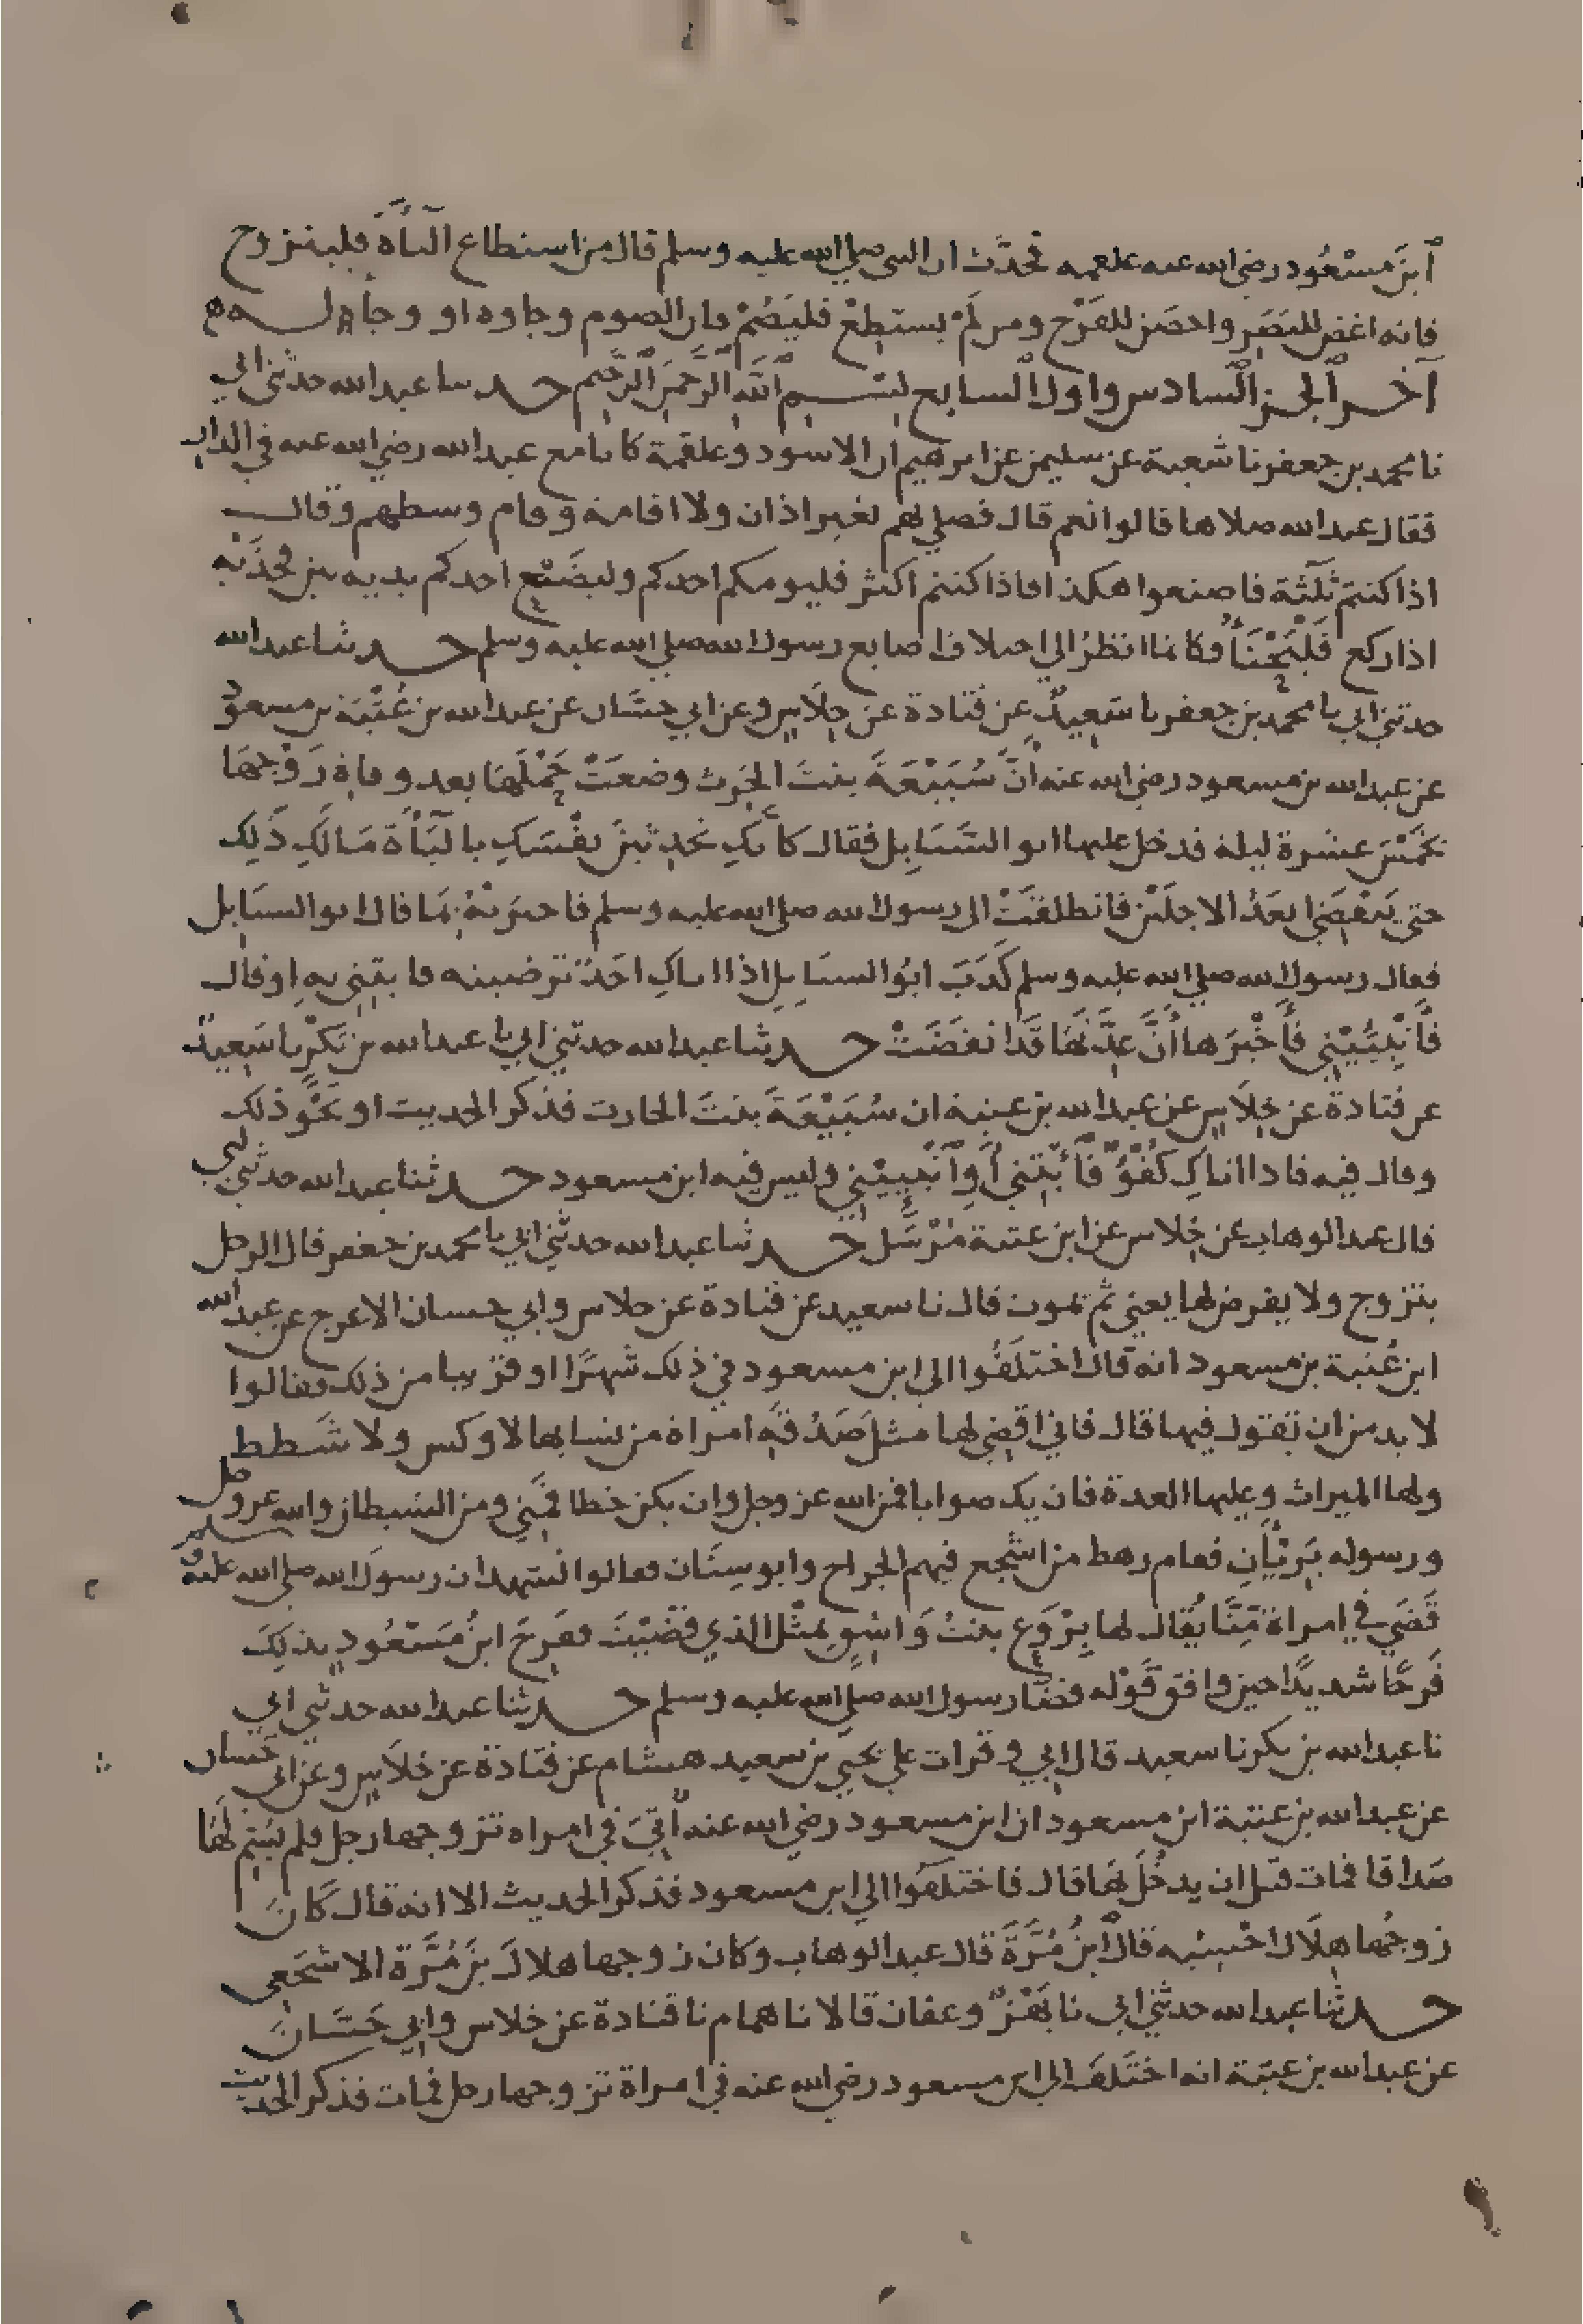 ابن مسعود رضي الله عنه علقمه فحدث ان النبي صلى الله عليه وسلم قال من استطاع الباءة فليتزوج
فانه اغض للبصر واحصن للفرج ومن لم يستطع فليصم فان الصوم وجاوه او وجاءة له
آخر الجز السادس واول السابع بسم الله الرحمن الرحيم حدثنا عبدالله حدثني ابي
نا محمد بن جعفر نا شعبة عن سليمن عن ابرهيم ان الاسود وعلقمة كانا مع عبدالله رضي الله عنه في الدار
فقال عبدالله صلا هاقالوا نعم قال فصلى بهم بغير اذان ولا اقامة وقام وسطهم وقال
اذا كنتم ثلثة فاصنعوا هكذا فاذا كنتم اكثر فليومكم احدكم وليضع احدكم يديه بين فخذيه
اذا ركع فليجنأ فكانما انظر الى اختلاف اصابع رسول الله صلى الله عليه وسلم حدثنا عبدالله
حدثني ابي نا محمد بن جعفر نا سعيد عن قتادة عن خلاس وعن ابي حسان عن عبدالله بن عتبة بن مسعود
عن عبدالله بن مسعود رضي الله عنه ان سبيعة بنت الحرث وضعت حملها بعد وفاة زوجها
بخمس عشرة ليلة فدخل عليها ابو السنابل فقال كأنك تحدثين نفسك بالباءة مالك ذلك
حتى ينقضي ابعد الاجلين فانطلقت الى رسول الله صلى الله عليه وسلم فاخبرته بما قال ابو السنابل
فقال رسول الله صلى الله عليه وسلم كذب ابو السنابل اذا اتاك احد ترضينه فايتني به او قال
فأنبئيني فأخبرها أن عدتها قد انقضت حدثنا عبدالله حدثني ابي نا عبدالله بن بكر نا سعيد
عن قتادة عن خلاس عن عبدالله بن عتبة ان سبيعة بنت الحارث فذكر الحديث او نحو ذلك
وقال فيه فاذا اتاك كفؤ فأتيني أو أنبئيني وليس فيه ابن مسعود حدثنا عبدالله حدثني ابي
قال عبدالوهاب عن خلاس عن ابن عتبة مرسل حدثنا عبدالله حدثني ابي نا محمد بن جعفر قال الرجل
يتزوج ولا يفرض لها يعني ثم يموت قال نا سعيد عن قتادة عن خلاس وابي حسان الاعرج عن عبدالله
ابن عتبة بن مسعود انه قال اختلفوا الى ابن مسعود في ذلك شهرا او قريبا من ذلك فقالوا
لا بد من ان تقول فيها قال فاني اقضي لها مثل صدقة امراة من نسايها لا وكس ولا شطط
ولها الميراث وعليها العدة فان يك صوابا فمن الله عز وجل وان يكن خطا فمني ومن الشيطان والله عز وجل
ورسوله بريئان فقام رهط من اشجع فيهم الجراح وابو سنان فقالوا نشهد ان رسول الله صلى الله عليه وسلم
قضى في امراة منا يقال لها بروع بنت واشق بمثل الذي قضيت ففرح ابن مسعود بذلك
فرحا شديدا حين وافق قوله قضا رسول الله صلى الله عليه وسلم حدثنا عبدالله حدثني ابي
نا عبدالله بن بكر نا سعيد قال ابي وقرات على يحيى بن سعيد هشام عن قتادة عن خلاس وعن ابي حسان
عن عبدالله بن عتبة ابن مسعود ان ابن مسعود رضي الله عنه أتي في امراه تزوجها رجل فلم يسم لها
صداقا فمات قبل ان يدخل بها قال فاختلفوا الى ابن مسعود فذكر الحديث الا انه قال كان
زوجها هلال احسبه قال ابن مرة قال عبدالوهاب وكان زوجها هلال بن مرة الاشجعي
حدثنا عبدالله حدثني ابي نا بهز وعفان قالا نا همام نا قتادة عن خلاس وابي حسان
عن عبدالله بن عتبة انه اختلف الى ابن مسعود رضي الله عنه في امراة تزوجها رجل فمات فذكر الحديث